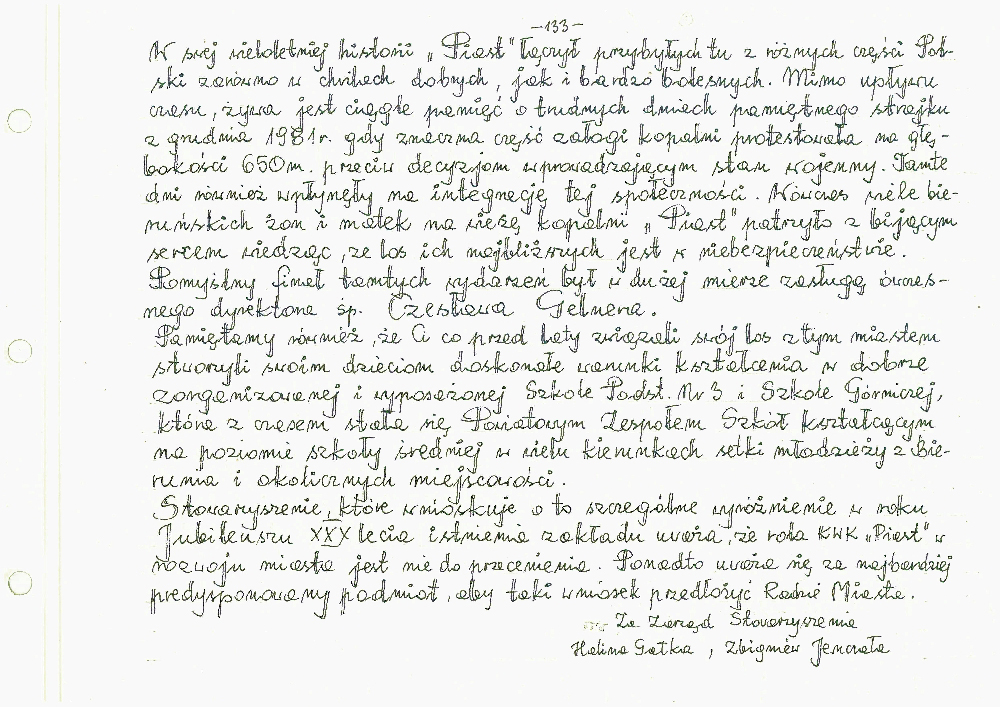 -133-
W swej wieloletniej historii „Piast" łączył przybyłych tu z różnych części Pol-
ski zarówno w chwilach dobrych, jak i bardzo bolesnych. Mimo upływu
czasu, żywa jest ciągle pamięć o trudnych dniach pamiętnego strajku
z grudnia 1981r. gdy znaczna część załogi kopalni protestowała na głę-
bokości 650m. przeciw decyzjom wprowadzającym stan wojenny. Tamte
dni również wpłynęły na integrację tej społeczności. Wówczas wiele bie-
ruńskich żon i matek na wieżę kopalni „Piast" patrzyło z bijącym
sercem wiedząc, ze los ich najbliższych jest w niebezpieczeństwie.
Pomyślny finał tamtych wydarzeń był w dużej mierze zasługą ówczes-
nego dyrektora śp. Czesława Gelnera.
Pamiętamy również, że Ci co przed laty związali swój los z tym miastem
stworzyli swoim dzieciom doskonałe warunki kształcenia w dobrze
zorganizowanej i wyposażonej Szkole Podst. Nr 3 i Szkole Górniczej,
która z czasem stała się Powiatowym Zespołem Szkół kształcącym
na poziomie szkoły średniej w wielu kierunkach setki młodzieży z Bie-
runia i okolicznych miejscowości.
Stowarzyszenie, które wnioskuje o to szczególne wyróżnienie w roku
Jubileuszu XXX lecia istnienia zakładu uważa, że rola KWK „Piast" w
rozwoju miasta jest nie do przecenienia. Ponadto uważa się za najbardziej
predysponowany podmiot, aby taki wniosek przedłożyć Radzie Miasta.
Za Zarząd Stowarzyszenia
Halina Gatka, Zbigniew Jenczała